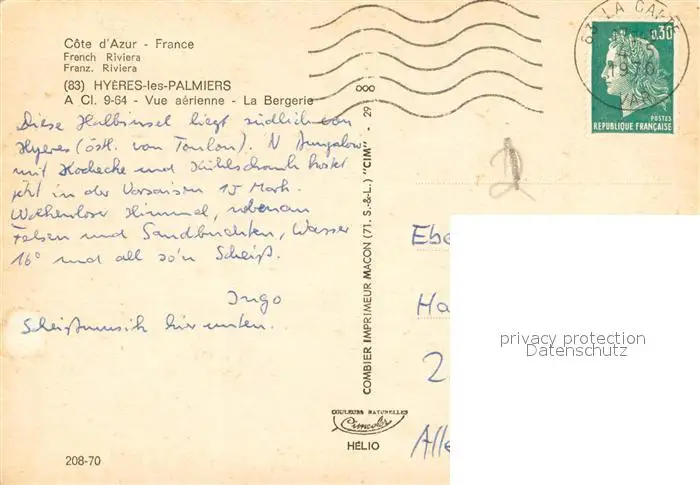 Côte d'Azur - France
French Riviera
Franz. Riviera
(83) HYÈRES-les-PALMIERS
A Cl. 9-64 - Vue aérienne - La Bergerie
Diese Halbinsel liegt südlich von
Hyeres (östl. von Toulon). N Bungalow
mit Kochecke und Kühlschrank kostet
jetzt in der Vorsaison 15 Mark.
Wolkenloser Himmel, nebenan
Felsen und Sandbuchten, Wasser
16° und all so'n Scheiß.
Ingo
Scheißmusik hier unten.
208-70
COMBIER IMPRIMEUR MACON (71. S.-&-L.) "CIM" - 29
COULEURS NATURELLES
Cimcolor
HÉLIO
83 LA CAPTE
1970
VAR
0,30
POSTES
REPUBLIQUE FRANÇAISE
Ebe
Ha
2
Alle
privacy protection
Datenschutz